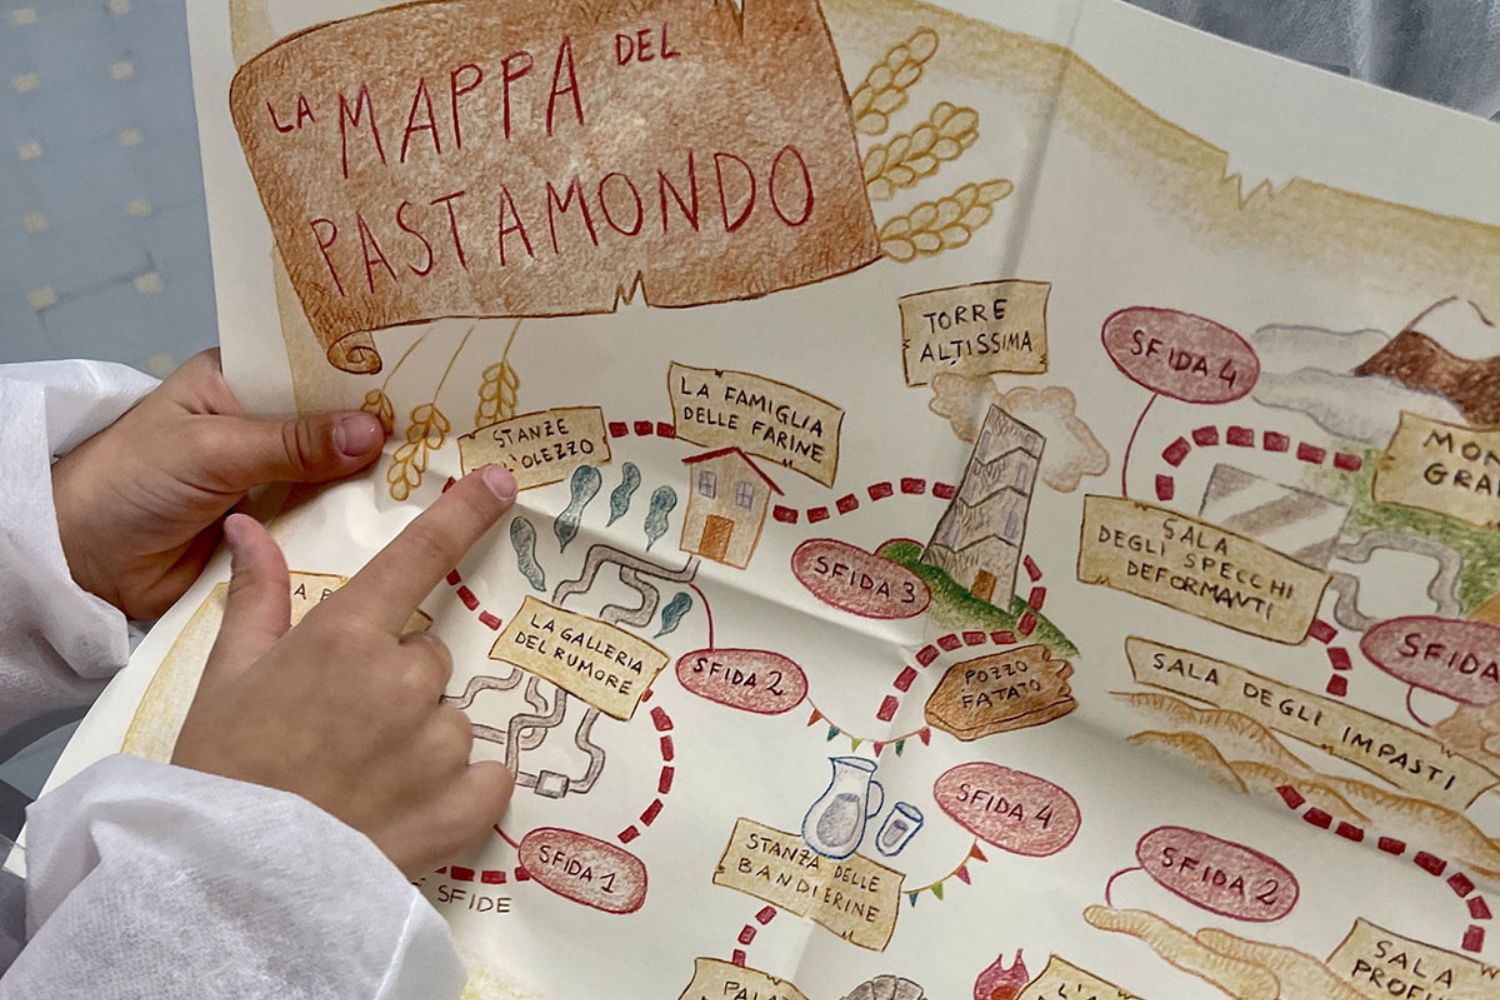 LA MAPPA DEL
PASTAMONDO
TORRE
ALTISSIMA
SFIDA 4
LA FAMIGLIA
DELLE FARINE
STANZE
OLEZZO
SALA
DEGLI SPECCHI
DEFORMANTI
SFIDA 3
LA GALLERIA
DEL RUMORE
SFIDA 2
POZZO
FATATO
SFIDA
SALA DEGLI IMPASTI
SFIDA 4
STANZA DELLE
BANDIERINE
SFIDA 1
SFIDE
SFIDA 2
SALA